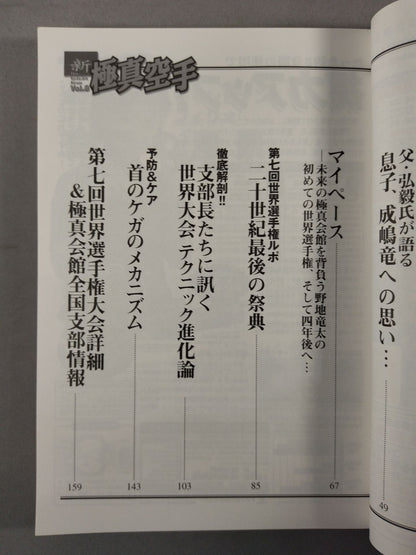 父・弘毅氏が語る
息子、成嶋竜への思い…
49
新
極真空手
Vol.8
マイペース
―未来の極真会館を背負う野地竜太の
初めての世界選手権、そして四年後へ…
67
第七回世界選手権ルポ
二十世紀最後の祭典
85
徹底解剖!!
支部長たちに訊く
世界大会 テクニック進化論
103
予防&ケア
首のケガのメカニズム
143
第七回世界選手権大会詳細
&極真会館全国支部情報
159